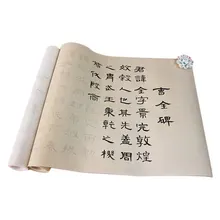 曹全碑
君諱全字景完敦煌
效穀人也其先蓋周
之胄武王秉乾之機
翦伐殷商